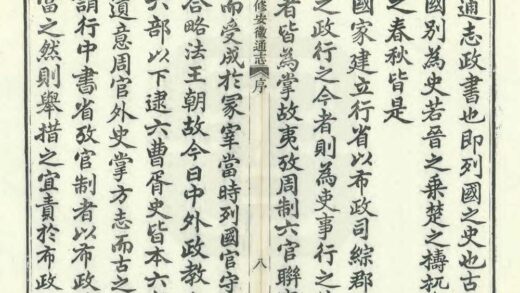 通志政書也即列國之史也古
國別為史若晉之乗楚之檮杌
之春秋皆是
國家建立行省以布政司綜郡
之政行之今者則為吏事行之
者皆為掌故夷攷周制六官聯
修安徽通志 序 八
而受成於冡宰當時列國官守
合略法王朝故今日中外政教
六部以下逮六曹胥史皆本六
遺意周官外史掌方志而古之
謂行中書省攷官制者以布政
當之然則舉措之宜責於布政